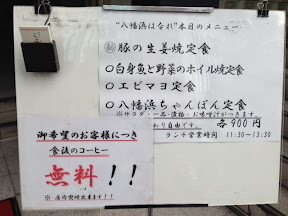 "八幡浜はなれ"本日のメニュー
豚の生姜焼定食
○白身魚と野菜のホイル焼定食
○エビマヨ定食
○八幡浜ちゃんぽん定食
※サラダ・一品・漬物・お味噌汁がつきます。
わり自由です。 各900円
ランチ営業時間 11:30~13:30
御希望のお客様につき
食後のコーヒー
無料!!
※店内喫煙出来ます!!